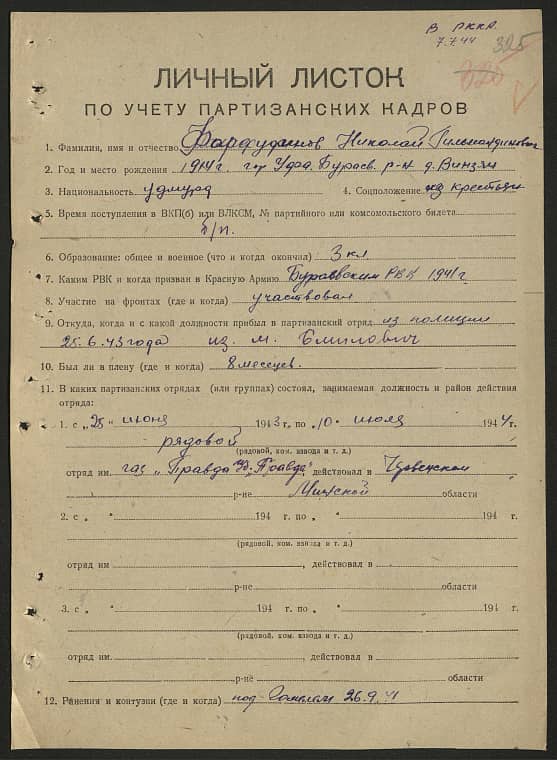 В РККА
7.7.44
325
325
ЛИЧНЫЙ ЛИСТОК
ПО УЧЕТУ ПАРТИЗАНСКИХ КАДРОВ
1. Фамилия, имя и отчество Николай
2. Год и место рождения 1914 г. гор Уфа, Бураев. р-н д.
3. Национальность удмурд 4. Соцположение из крестьян
5. Время поступления в ВКП(б) или ВЛКСМ, № партийного или комсомольского билета
б/п.
6. Образование: общее и военное (что и когда окончил) 3 кл
7. Каким РВК и когда призван в Красную Армию Бураевским РВК 1941 г.
8. Участие на фронтах (где и когда) участвовал
9. Откуда, когда и с какой должности прибыл в партизанский отряд из полиции
25.6.43 года из м.
10. Был ли в плену (где и когда) 8 месяцев.
11. В каких партизанских отрядах (или группах) состоял, занимаемая должность и район действия
отряда:
1. с „25" июня 1943 г. по „10" июля 1944 г.
рядовой
(рядовой, ком. взвода и т. д.)
отряд им. газ „Правда" „Правда", действовал в
р-не Минской области
2. с „ " 194 г. по „ " 194 г.
(рядовой, ком. взвода и т. д.)
отряд им , действовал в
р-не области
3. с „ " 194 г. по „ " 194 г.
(рядовой, ком. взвода и т. д.)
отряд им. , действовал в
р-не области
12. Ранения и контузии (где и когда) под Гомелем 26.9.41